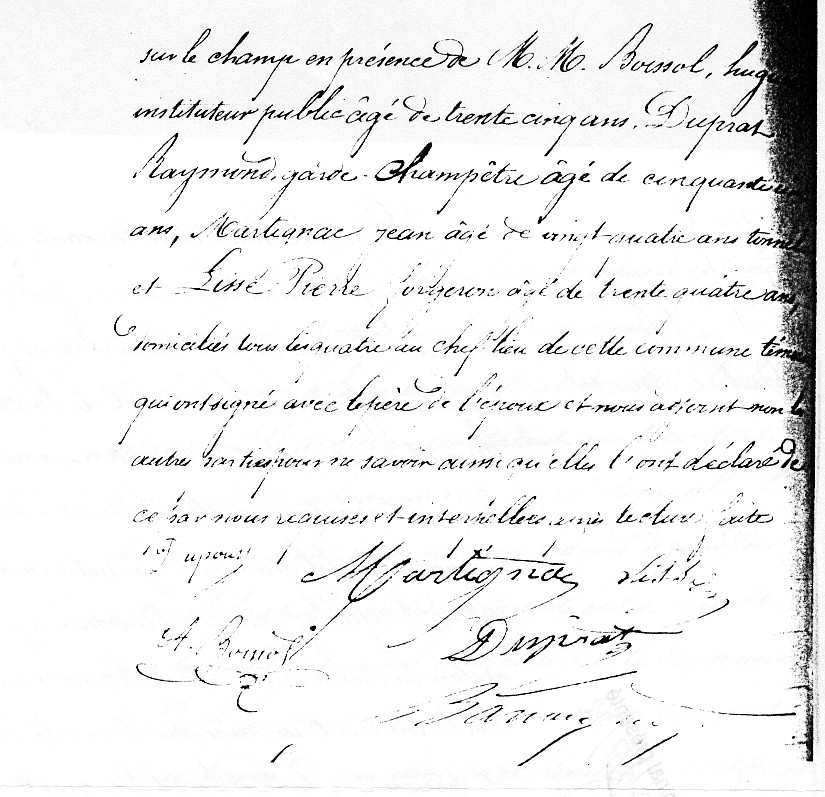 sur le champ en présence de M. M. Boissol, hugues
instituteur public âgé de trente cinq ans, Duprat
Raymond, garde-champêtre âgé de cinquante
ans, Martignac jean âgé de vingt-quatre ans
et Lissé Pierre forgeron âgé de trente quatre ans,
domiciliés tous les quatre au chef lieu de cette commune
qui ont signé avec le père de l'époux et nous adjoint non le
autres parties pour ne savoir ainsi qu'elles l'ont déclaré de
ce par nous requises et interpellées après lecture faite
Martignac
Duprat